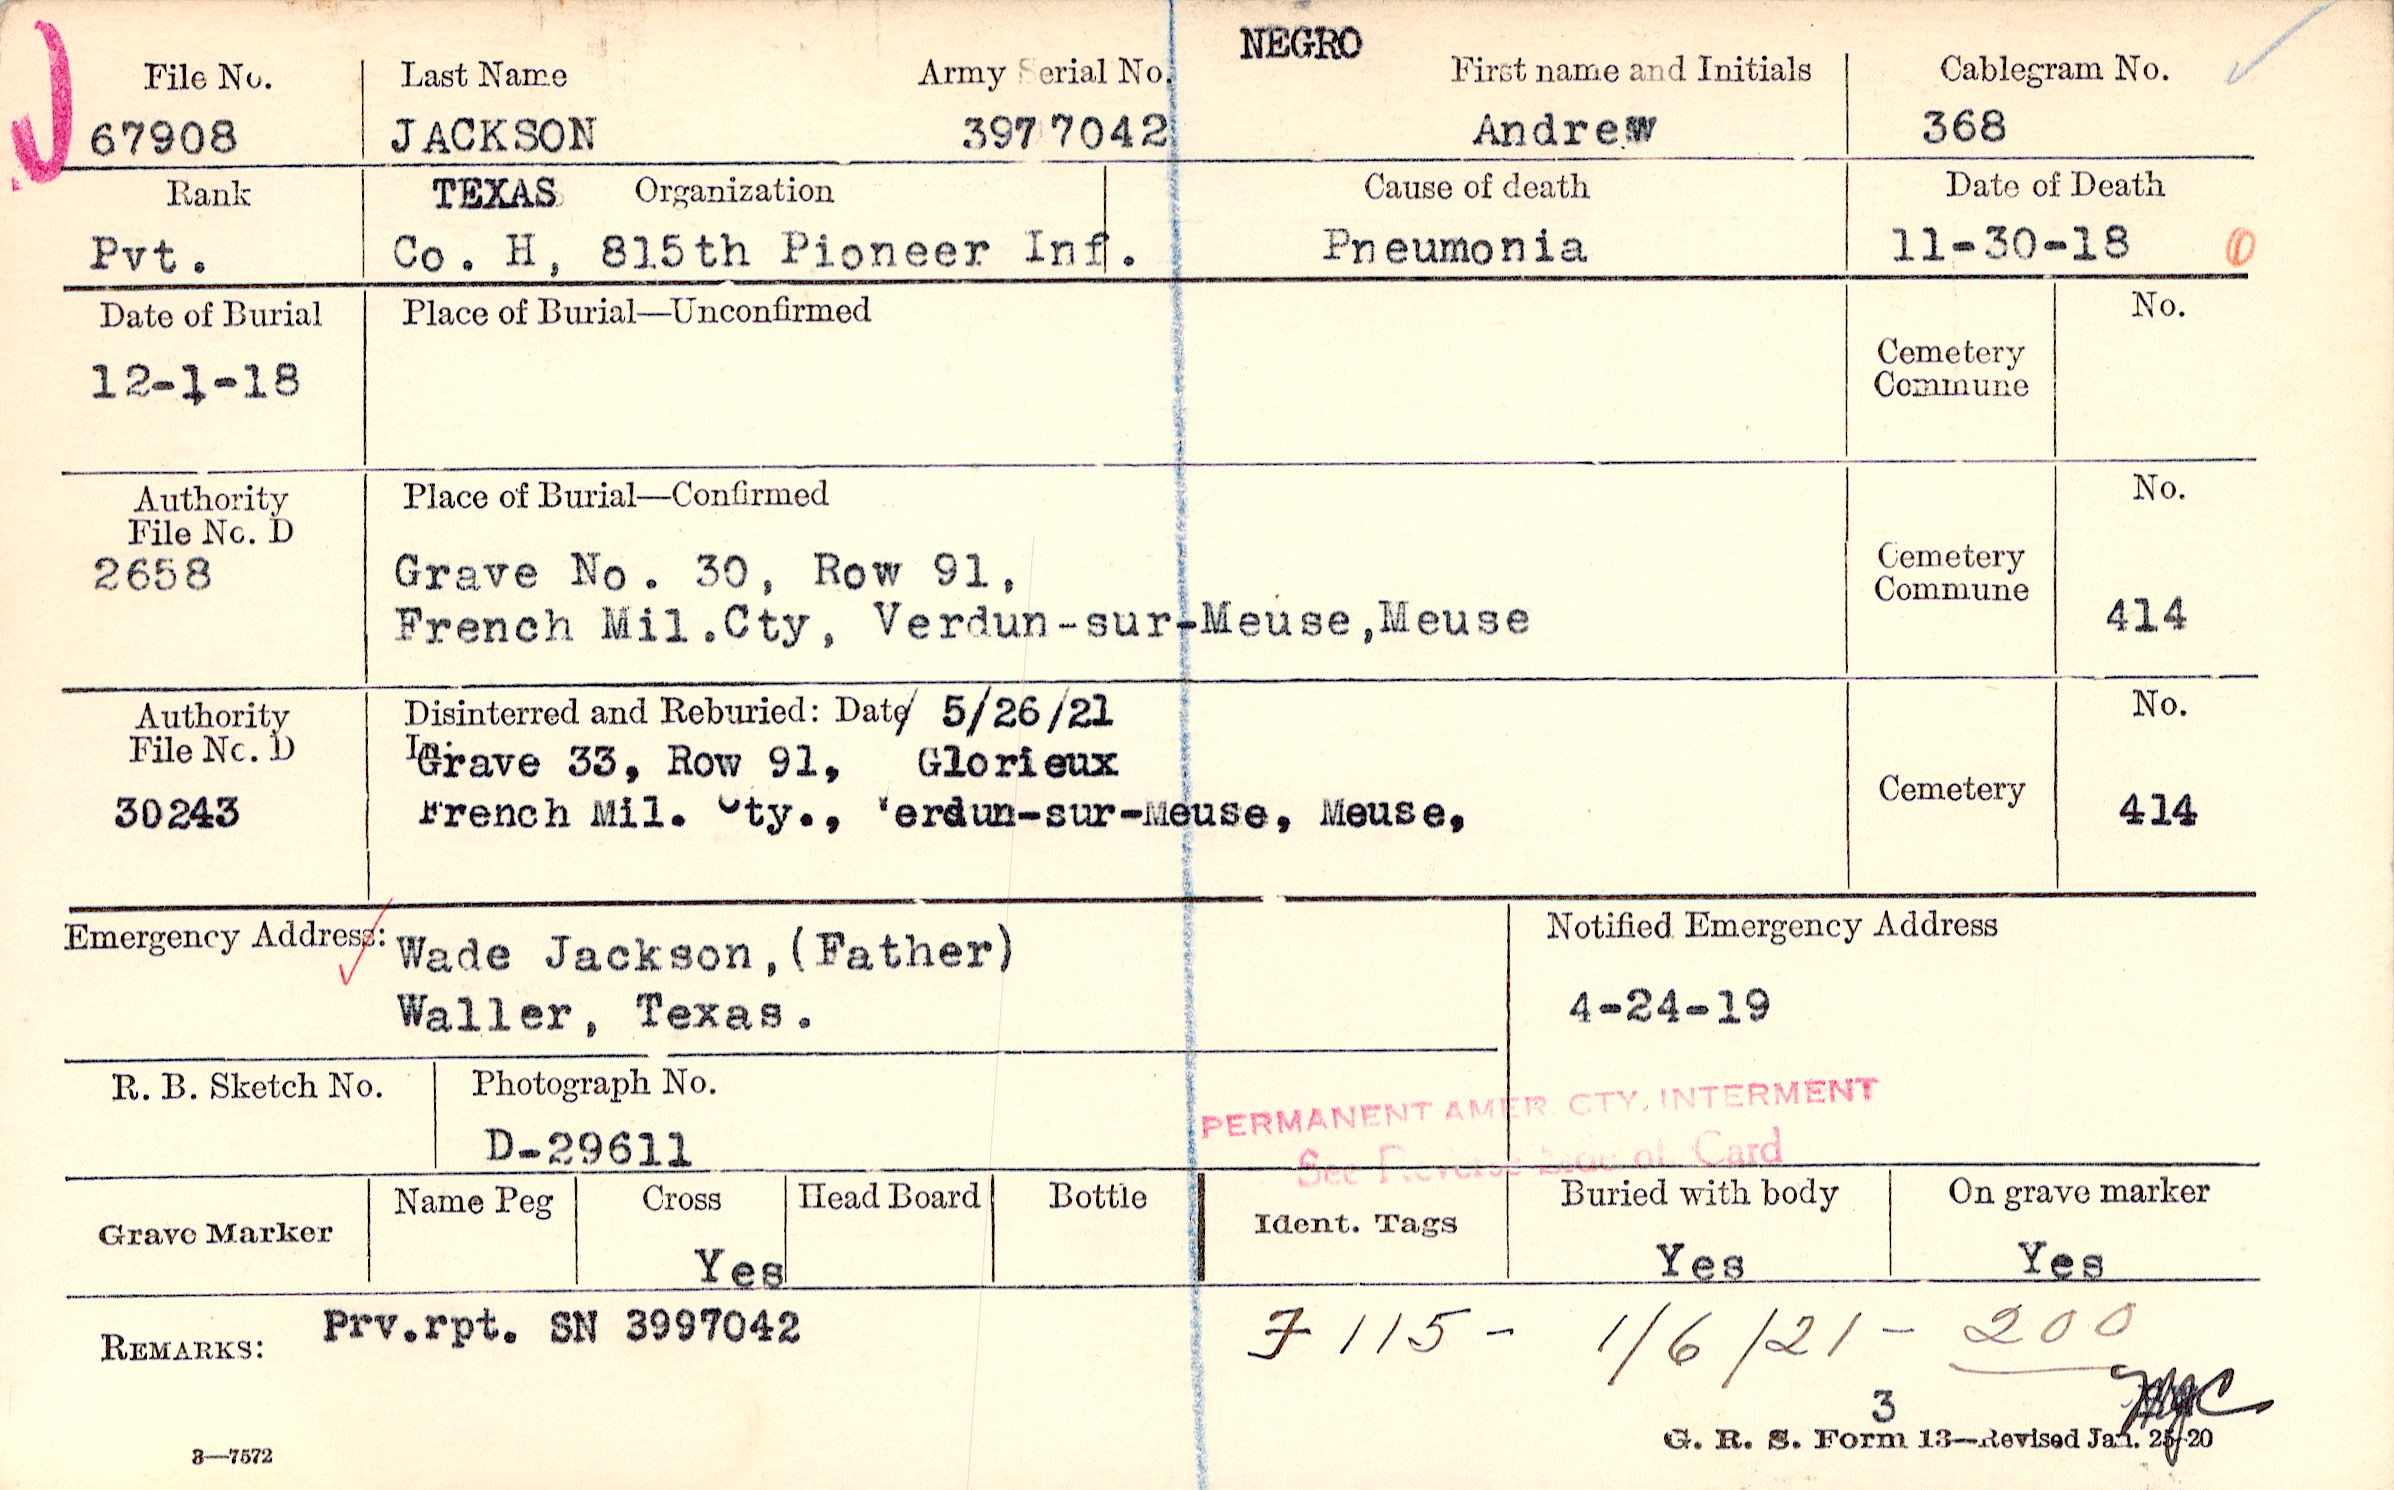 NEGRO
File No. Last Name Army Serial No. First name and Initials Cablegram No.
67908 JACKSON 3977042 Andrew 368
Rank TEXAS Organization Cause of death Date of Death
Pvt. Co. H, 815th Pioneer Inf. Pneumonia 11-30-18 0
Date of Burial Place of Burial—Unconfirmed No.
12-1-18 Cemetery
Commune
Authority Place of Burial—Confirmed No.
File No. D
2658 Grave No. 30, Row 91, Cemetery
Commune
French Mil.Cty, Verdun-sur-Meuse,Meuse 414
Authority Disinterred and Reburied: Date 5/26/21 No.
File No. D In:
Grave 33, Row 91, Glorieux Cemetery
30243 French Mil. Cty., Verdun-sur-Meuse, Meuse, 414
Emergency Address: Wade Jackson,(Father) Notified Emergency Address
Waller, Texas. 4-24-19
R. B. Sketch No. Photograph No. PERMANENT AMER. CTY. INTERMENT
D-29611 See Reverse Side of Card
Grave Marker Name Peg Cross Head Board Bottle Ident. Tags Buried with body On grave marker
Yes Yes Yes
REMARKS: Prv.rpt. SN 3997042 F 115 - 1/6/21 - 200
3
3—7572 G. R. S. Form 13—Revised Jan. 25-20